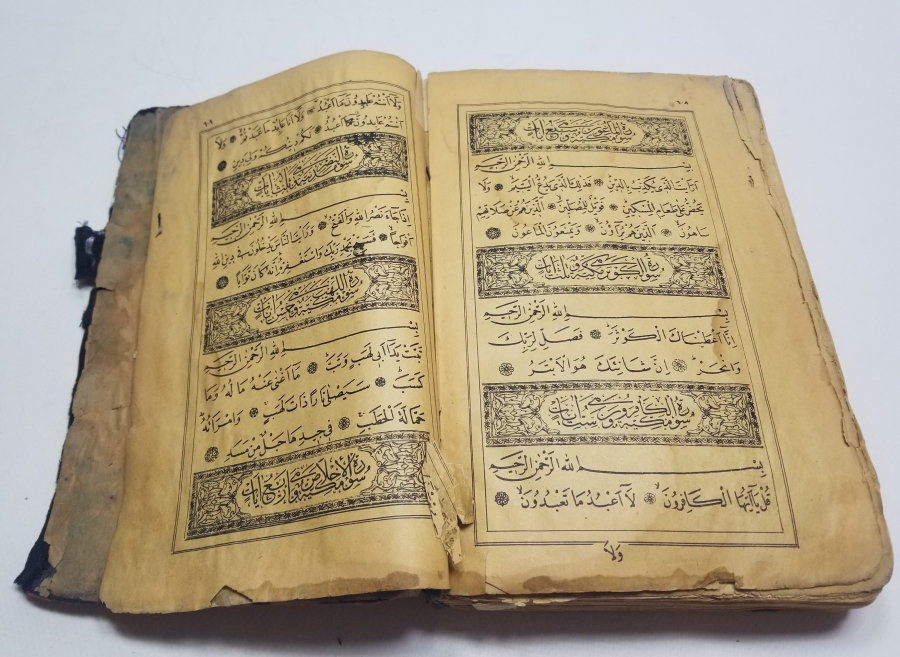 سورة الماعون مكية وهي سبع ايات
بِسْمِ اللهِ الرَّحْمٰنِ الرَّحِيمِ
اَرَاَيْتَ الَّذِي يُكَذِّبُ بِالدِّينِ فَذٰلِكَ الَّذِي يَدُعُّ الْيَتِيمَ وَلَا
يَحُضُّ عَلٰى طَعَامِ الْمِسْكِينِ فَوَيْلٌ لِلْمُصَلِّينَ الَّذِينَ هُمْ عَنْ صَلَاتِهِمْ
سَاهُونَ اَلَّذِينَ هُمْ يُرَاؤُنَ وَيَمْنَعُونَ الْمَاعُونَ
سورة الكوثر مكية وهي ثلث ايات
بِسْمِ اللهِ الرَّحْمٰنِ الرَّحِيمِ
اِنَّا اَعْطَيْنَاكَ الْكَوْثَرَ فَصَلِّ لِرَبِّكَ
وَانْحَرْ اِنَّ شَانِئَكَ هُوَ الْاَبْتَرُ
سورة الكافرون مكية وهي ست ايات
بِسْمِ اللهِ الرَّحْمٰنِ الرَّحِيمِ
قُلْ يَآ اَيُّهَا الْكَافِرُونَ لَآ اَعْبُدُ مَا تَعْبُدُونَ
وَلَآ
وَلَآ اَنْتُمْ عَابِدُونَ مَآ اَعْبُدُ وَلَآ اَنَا عَابِدٌ مَا عَبَدْتُمْ وَلَآ
اَنْتُمْ عَابِدُونَ مَآ اَعْبُدُ لَكُمْ دِينُكُمْ وَلِيَ دِينِ
سورة النصر مدنية وهي ثلث ايات
بِسْمِ اللهِ الرَّحْمٰنِ الرَّحِيمِ
اِذَا جَآءَ نَصْرُ اللهِ وَالْفَتْحُ وَرَاَيْتَ النَّاسَ يَدْخُلُونَ فِي دِينِ اللهِ
اَفْوَاجًا فَسَبِّحْ بِحَمْدِ رَبِّكَ وَاسْتَغْفِرْهُ اِنَّهُ كَانَ تَوَّابًا
سورة اللهب مكية وهي خمس ايات
بِسْمِ اللهِ الرَّحْمٰنِ الرَّحِيمِ
تَبَّتْ يَدَآ اَبِي لَهَبٍ وَتَبَّ مَآ اَغْنٰى عَنْهُ مَالُهُ وَمَا
كَسَبَ سَيَصْلٰى نَارًا ذَاتَ لَهَبٍ وَامْرَاَتُهُ
حَمَّالَةَ الْحَطَبِ فِي جِيدِهَا حَبْلٌ مِنْ مَسَدٍ
سورة الاخلاص مكية وهي اربع ايات